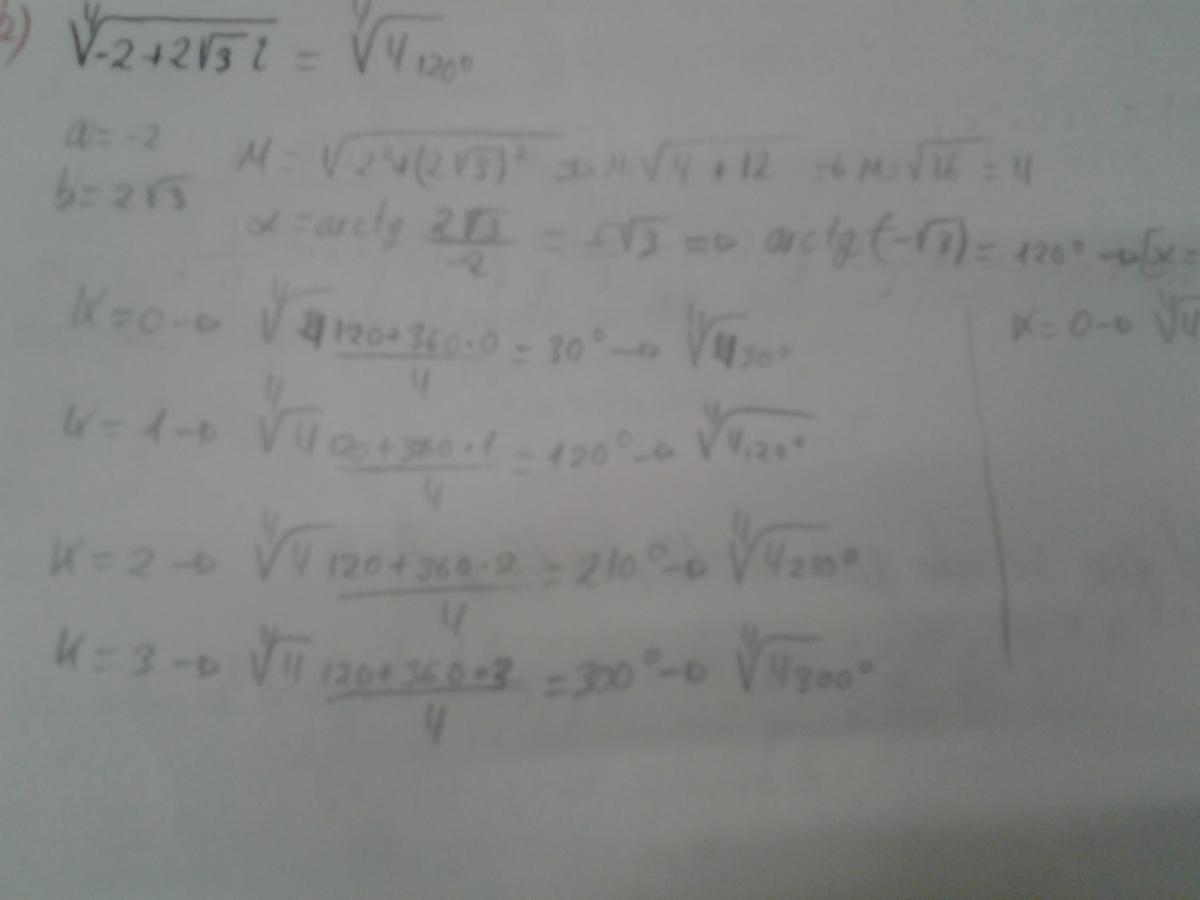 2) ∜-2+2√3 i = ∜4 120°
a = -2
b = 2√3
M = √-2²+(2√3)² => M = √4 + 12 → M = √16 = 4
α = arctg 2√3/-2 = -√3 => arctg (-√3) = 120° → [α =
K = 0 → ∜4 120+360·0/4 = 30° → ∜4 30°
K = 0 → ∜4
K = 1 → ∜4 120+360·1/4 = 120° → ∜4 120°
K = 2 → ∜4 120+360·2/4 = 210° → ∜4 210°
K = 3 → ∜4 120+360·3/4 = 300° → ∜4 300°